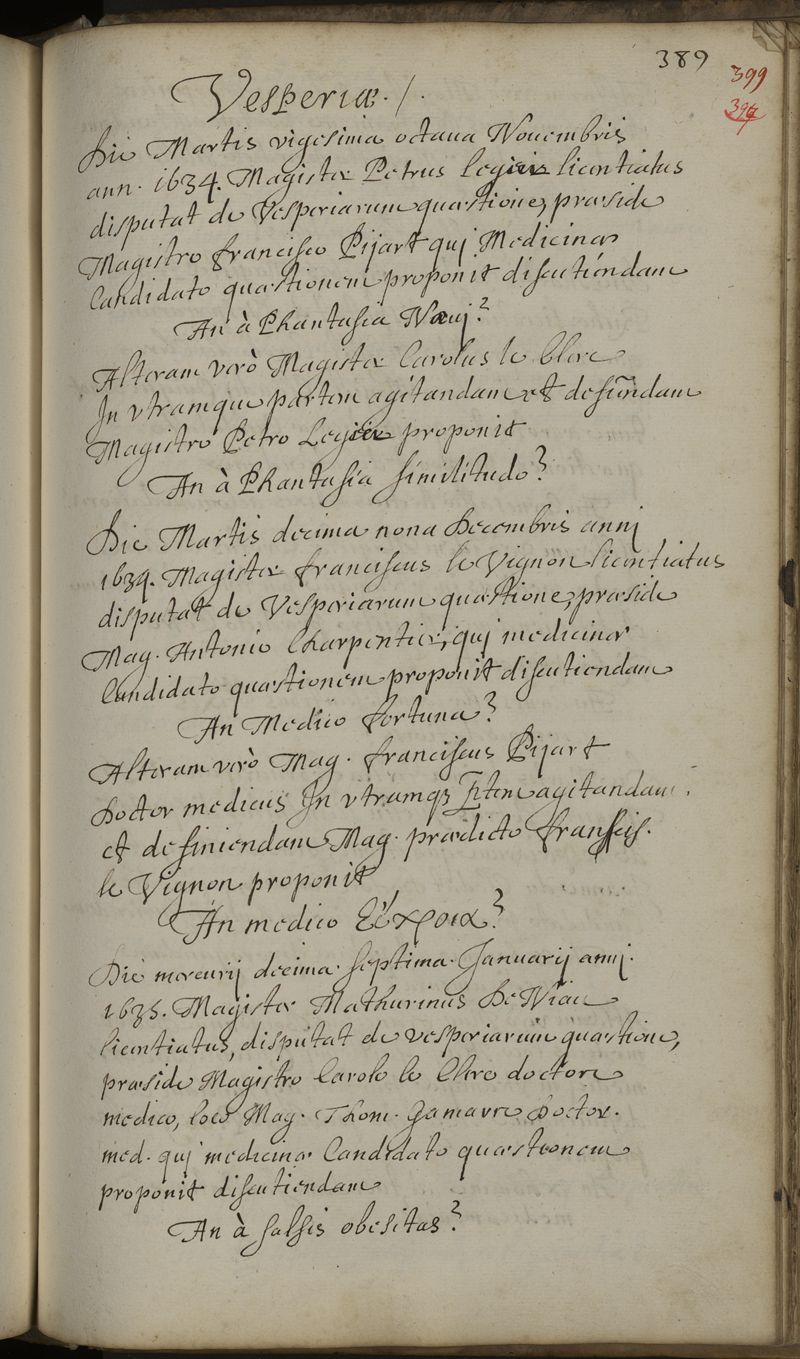 389
399
Vesperiæ. /.
Die Martis vigesima octaua Nouembris
ann. 1634. Magister Petrus Legier licentiatus
disputat de Vesperiarum quæstione, præside
Magistro francisco Pijart quj Medicinæ
Candidato quæstionem proponit discutiendam
An à Phantasia Næuj?
Alteram verò Magister Carolus le Clerc
In vtramque partem agitandam et definiendam
Magistro Petro Legier proponit
An à Phantasia similitudo?
Die Martis decima nona Decembris annj
1634. Magister franciscus le Vignon licentiatus
disputat de Vesperiarum quæstione, præside
Mag. Antonio Charpentier, quj medicinæ
Candidato quæstionem proponit discutiendam
An Medico fortuna?
Alteram verò Mag. franciscus Pijart
Doctor medicus In vtramq3 ptem agitandam
et definiendam Mag. prædicto francis.
le Vignon proponit
An medico Εὔχροια?
Die mercurij decima septima Januarij annj.
1635. Magister Mathurinus De Niau
licentiatus, disputat de vesperiarum quæstione,
præside Magistro Carolo le Clerc doctore
medico, loco Mag. Thom. Gamarre Doctor.
med. quj medicinæ Candidato quæstionem
proponit discutiendam
An à salsis obesitas?